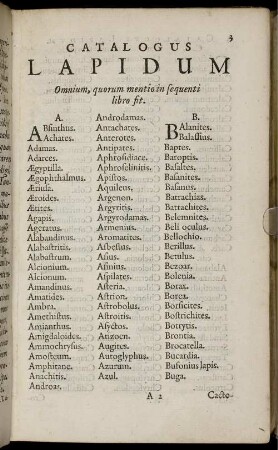 3
CATALOGUS
LAPIDUM
Omnium, quorum mentio in sequenti
libro fit.
A.
ABsinthus.
Achates.
Adamas.
Adarces.
Ægyptilla.
Ægophthalmus.
Ætiuda.
Æroides.
Ætites.
Agapis.
Ageratus.
Alabandinus.
Alabastritis.
Alabastrum.
Alcionium.
Alectorius.
Amandinus.
Amatides.
Ambra.
Amethistus.
Amianthus.
Amigdaloides.
Ammochrysus.
Amosteum.
Amphitane.
Anachitis.
Androas.
Androdamas.
Antachates.
Anterotes.
Antipates.
Aphrosidiace.
Aphroselinitis.
Apistos.
Aquileus.
Argenon.
Argyritis.
Argyrodamas.
Armenus.
Aromatites.
Asbestus.
Asius.
Assius.
Aspilates.
Asteria.
Astrion.
Astrobolus.
Astroitis.
Asyctos.
Atizoen.
Augites.
Autoglyphus.
Azurum.
Azul.
B.
BAlanites.
Balassius.
Baptes.
Baroptis.
Basaltes.
Basanites.
Basanus.
Batrachias.
Batrachites.
Belemnites.
Beli oculus.
Bellochio.
Berillus.
Betulus.
Bezoar.
Bolenia.
Borax.
Borea.
Borsicites.
Bostrichites.
Bottytis.
Brontia.
Brocatella.
Bucardia.
Bufonius lapis.
Buga.
A 2
Cacto-